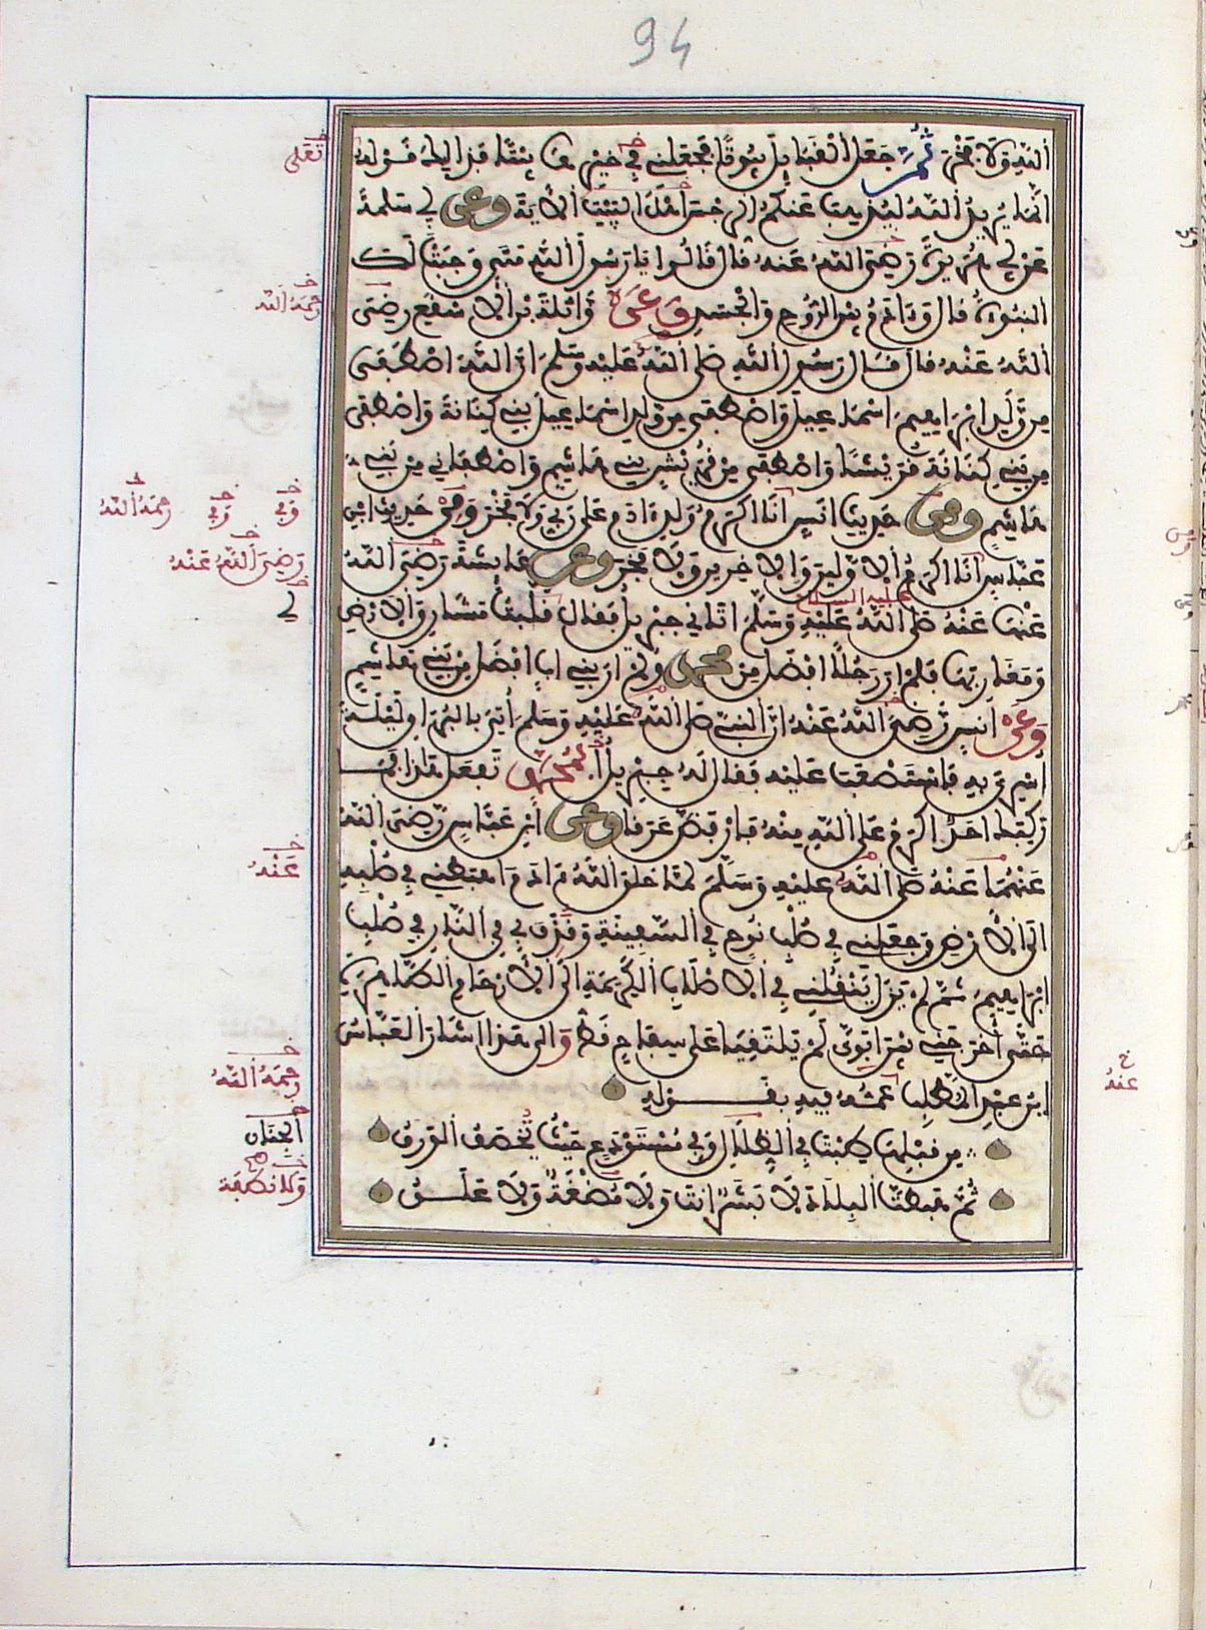 94
اللَّهِ وَلَا فَخْرَ ثُمَّ جَعَلَ الْقَبَائِلَ بُيُوتًا فَجَعَلَنِي فِي خَيْرِهَا بَيْتًا فَذَلِكَ قَوْلُهُ
إِنَّمَا يُرِيدُ اللَّهُ لِيُذْهِبَ عَنكُمُ الرِّجْسَ أَهْلَ الْبَيْتِ الْآيَةَ وعن أبي سلمة
عن أبي هريرة رضي الله عنه قال قالوا يا رسول الله متى وجبت لك
النبوءة قال وءادم بين الروح والجسد وعن واثلة بن الأسقع رضي
الله عنه قال قال رسول الله صلى الله عليه وسلم إن الله اصطفى
من ولد إبراهيم إسماعيل واصطفى من ولد إسماعيل بني كنانة واصطفى
من بني كنانة قريشا واصطفى من قريش بني هاشم واصطفاني من بني
هاشم ومن حديث أنس أنا أكرم ولد ءادم على ربي ولا فخر وفي حديث ابن
عباس أنا أكرم الأولين والآخرين ولا فخر وعن عايشة رضي الله
عنها عنه صلى الله عليه وسلم أتاني جبريل فقال قلبت مشارق الأرض
عليه السلام
ومغاربها فلم أر رجلا أفضل من محمد ولم أر بني أب أفضل من بني هاشم
وعن أنس رضي الله عنه أن النبي صلى الله عليه وسلم أتي بالبراق ليلة
أسري به فاستصعب عليه فقال له جبريل أبمحمد تفعل هذا فما
ركبك أحد أكرم على الله منه فارفض عرقا وعن ابن عباس رضي الله
عنهما عنه صلى الله عليه وسلم لما خلق الله ءادم أهبطني في صلبه
إلى الأرض وجعلني في صلب نوح في السفينة وقذف بي في النار في صلب
إبراهيم ثم لم يزل ينقلني في الأصلاب الكريمة إلى الأرحام الطاهرة
حتى أخرجني بين أبوي لم يلتقيا على سفاح قط وإلى هذا أشار العباس
ابن عبد المطلب عمه فيه بقوله
من قبلها طبت في الظلال وفي مستودع حيث يخصف الورق
ثم هبطت البلاد لا بشر أنت ولا مضغة ولا علق
تعلى
رحمه الله
وفي وفي رحمه الله
رضي الله عنه
لي
عنه
رحمه الله
الجنان
ولا نطفة
خ
عنه